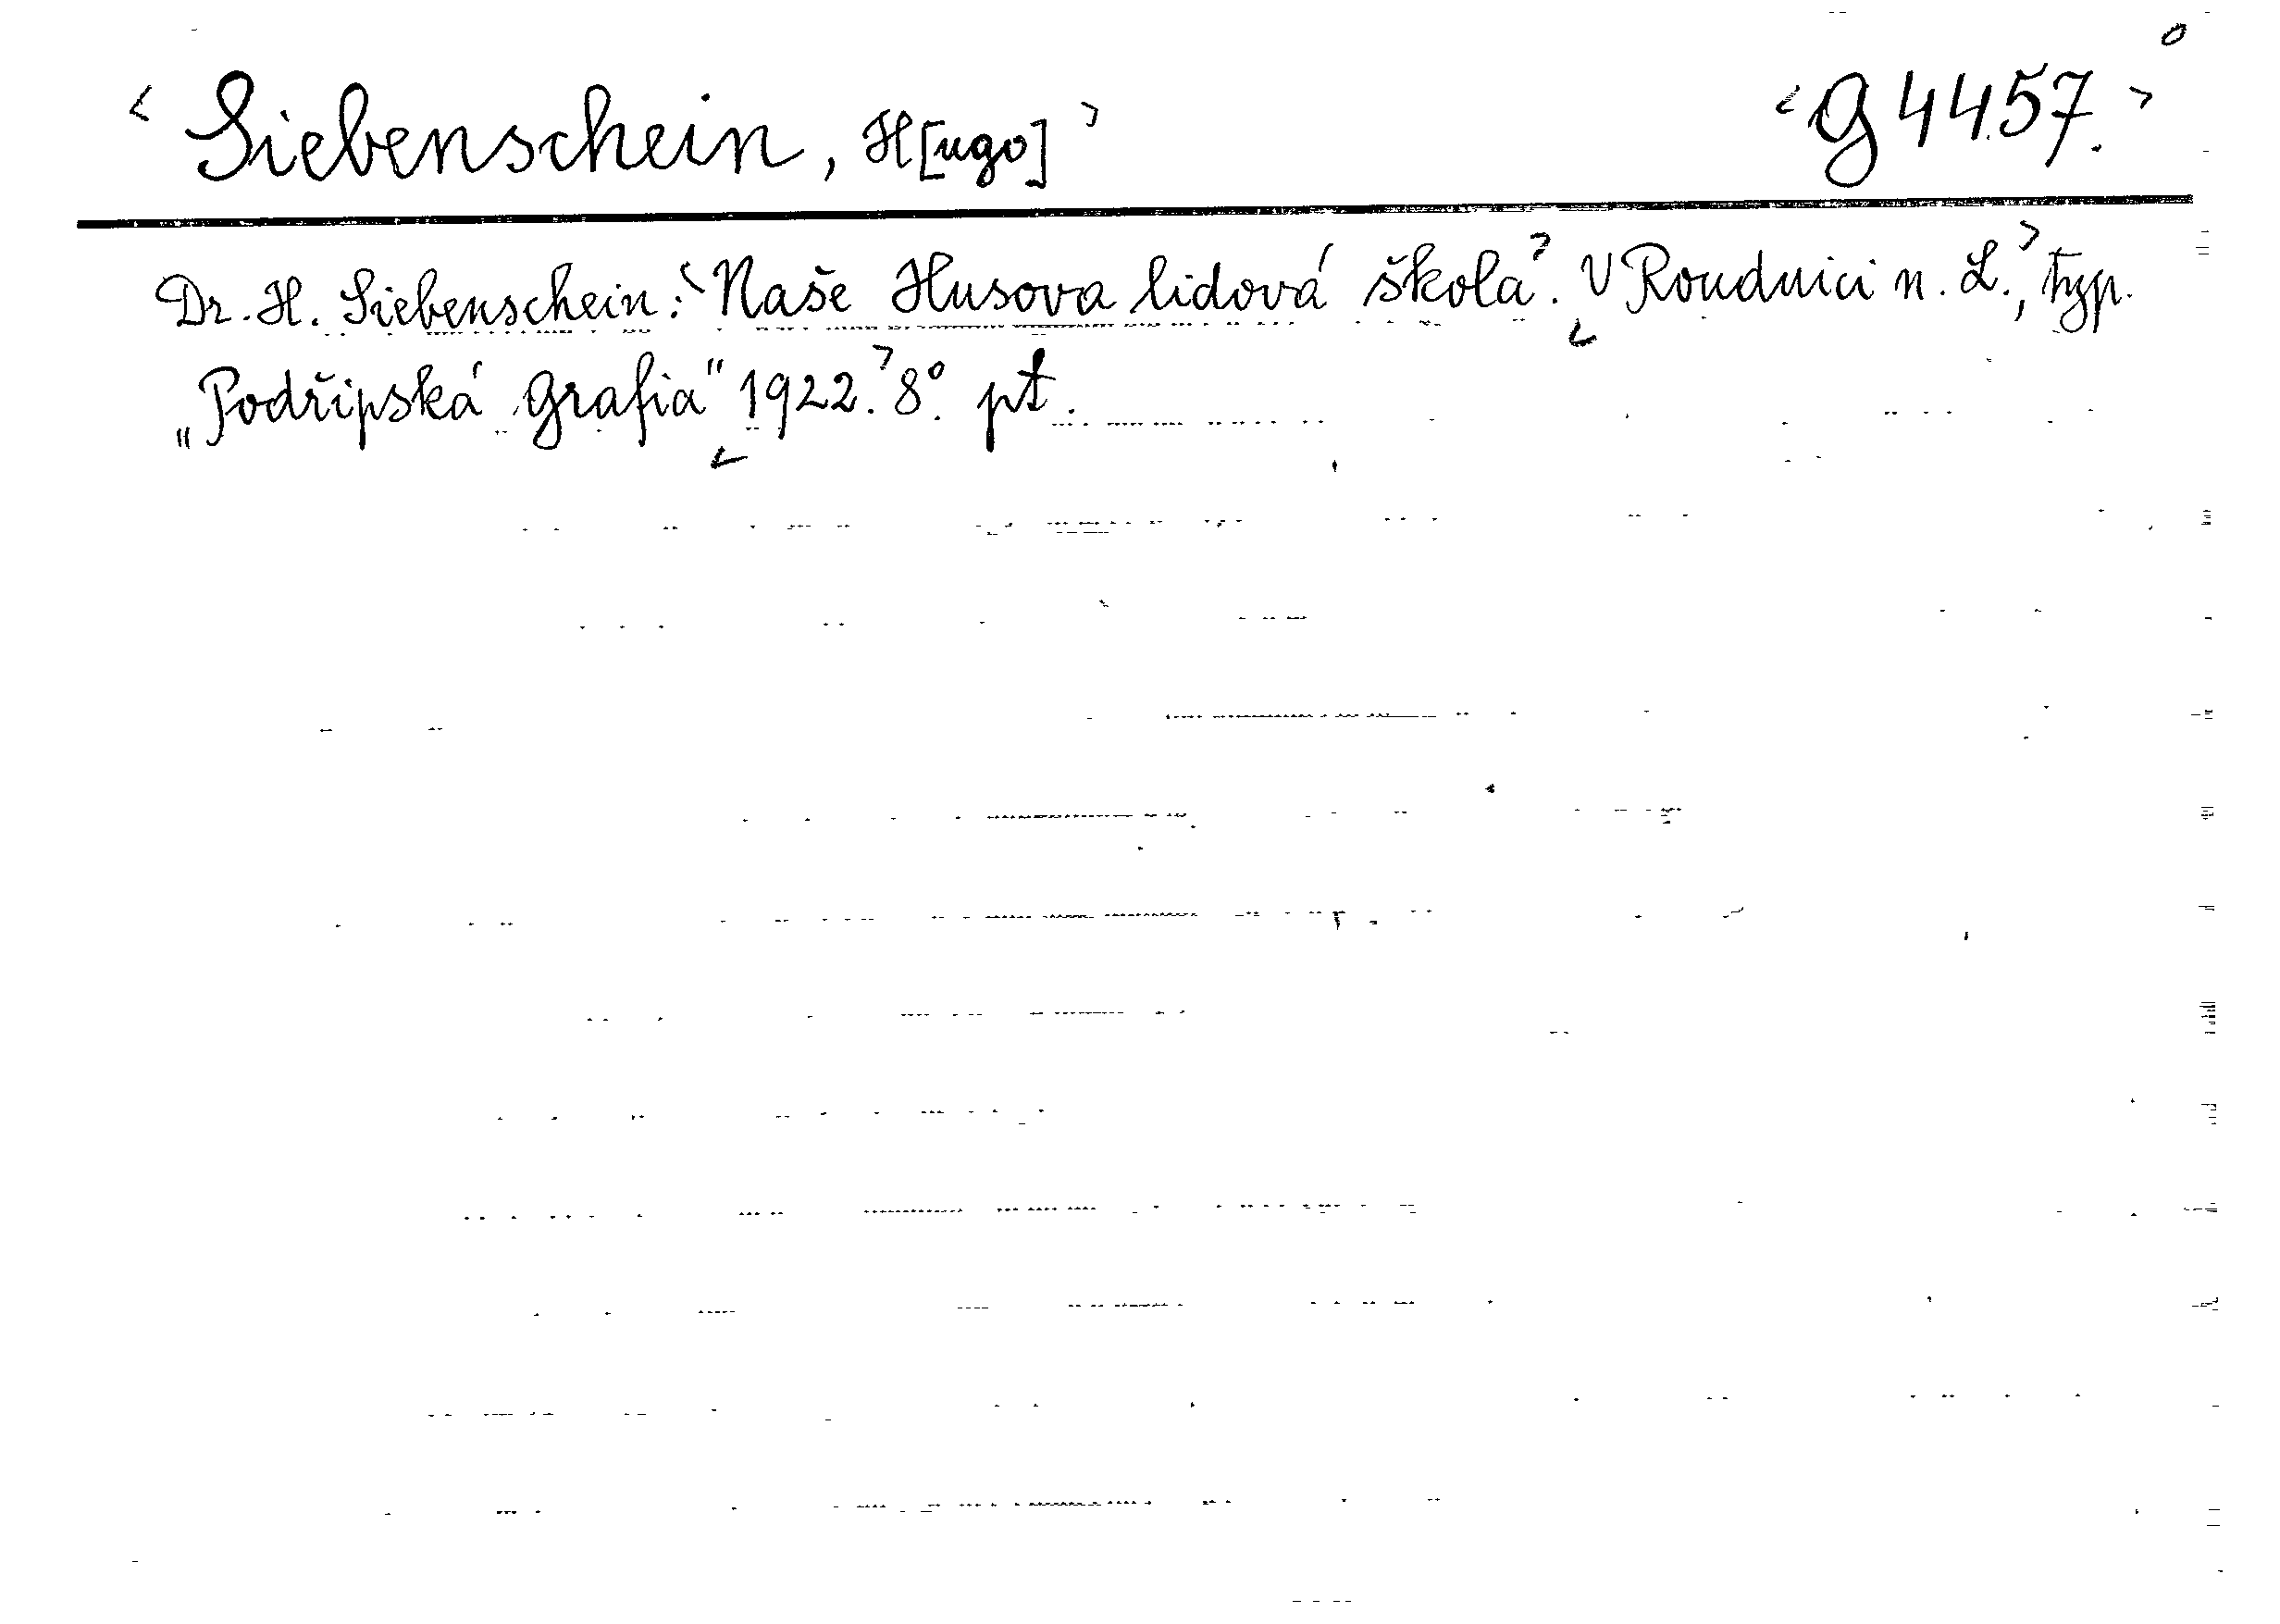 ‹ Siebenschein, H[ugo] › ‹ G 4457. ›
Dr. H. Siebenschein: ‹ Naše Husova lidová škola ›. ‹ V Roudnici n. L. ›, typ.
„Podřipská Grafia" ‹ 1922. › 8°. pt.